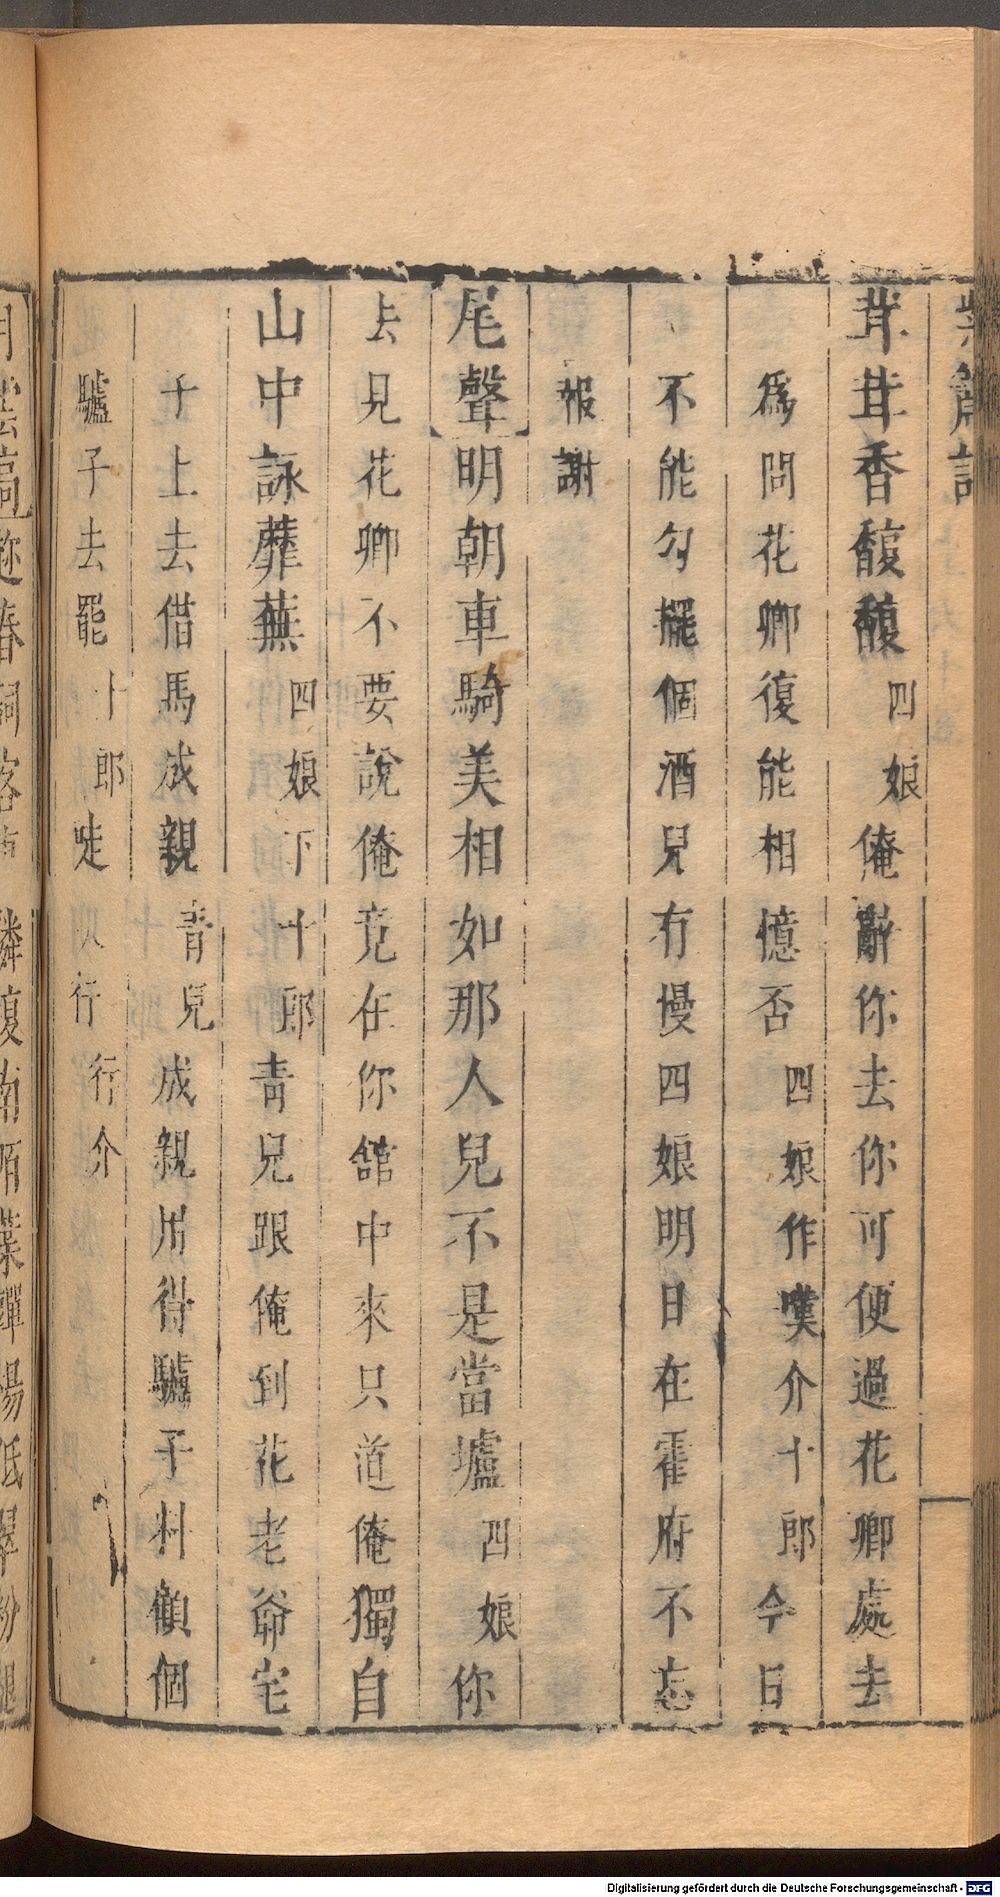 紫簫記
茸茸香馥馥四娘俺辭你去你可便過花卿處去
爲問花卿復能相憶否四娘作嘆介十郎今日
不能勾擺個酒兒有慢四娘明日在霍府不忘
報謝
尾聲明朝車騎美相如那人兒不是當壚四娘你
去見花卿不要說俺竟在你館中來只道俺獨自
山中詠蘼蕪四娘下十郎青兒跟俺到花老爺宅
子上去借馬成親青兒成親用得驢子料顧個
驢子去罷十郎唗行介
Digitalisierung gefördert durch die Deutsche Forschungsgemeinschaft - DFG